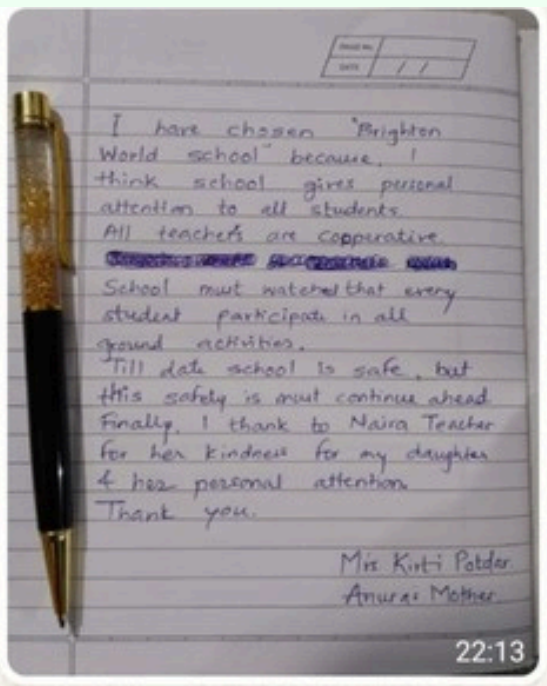 PAGE No.
DATE / /
I have chosen "Brighton
World school" because, I
think school gives personal
attention to all students.
All teachers are cooperative.
School must watched that every
student participate in all
ground activities.
Till date school is safe, but
this safety is must continue ahead.
Finally, I thank to Naira Teacher
for her kindness for my daughter
& her personal attention.
Thank you.
Mrs Kirti Potdar
Mother
22:13